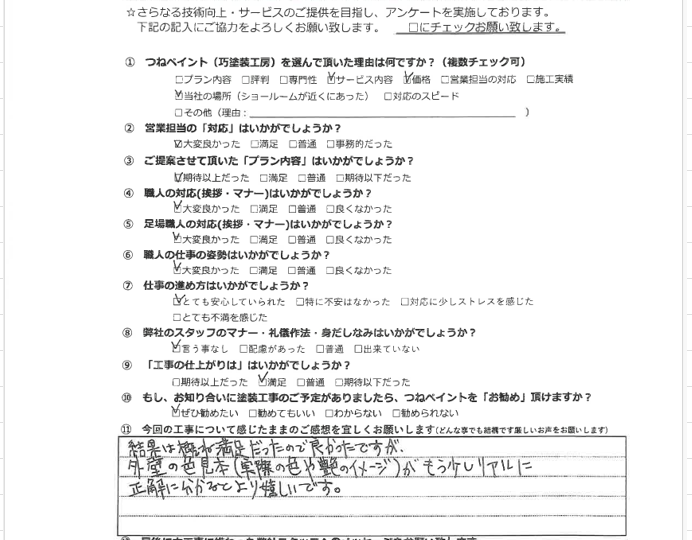 ☆さらなる技術向上・サービスのご提供を目指し、アンケートを実施しております。
下記の記入にご協力をよろしくお願い致します。 □にチェックお願い致します。
① つねペイント（巧塗装工房）を選んで頂いた理由は何ですか？（複数チェック可）
□プラン内容 □評判 □専門性 ☑サービス内容 ☑価格 □営業担当の対応 □施工実績
☑当社の場所（ショールームが近くにあった） □対応のスピード
□その他（理由： ）
② 営業担当の「対応」はいかがでしょうか？
☑大変良かった □満足 □普通 □事務的だった
③ ご提案させて頂いた「プラン内容」はいかがでしょうか？
☑期待以上だった □満足 □普通 □期待以下だった
④ 職人の対応(挨拶・マナー)はいかがでしょうか？
☑大変良かった □満足 □普通 □良くなかった
⑤ 足場職人の対応(挨拶・マナー)はいかがでしょうか？
☑大変良かった □満足 □普通 □良くなかった
⑥ 職人の仕事の姿勢はいかがでしょうか？
☑大変良かった □満足 □普通 □良くなかった
⑦ 仕事の進め方はいかがでしょうか？
☑とても安心していられた □特に不安はなかった □対応に少しストレスを感じた
□とても不満を感じた
⑧ 弊社のスタッフのマナー・礼儀作法・身だしなみはいかがでしょうか？
☑言う事なし □配慮があった □普通 □出来ていない
⑨ 「工事の仕上がりは」はいかがでしょうか？
□期待以上だった ☑満足 □普通 □期待以下だった
⑩ もし、お知り合いに塗装工事のご予定がありましたら、つねペイントを「お勧め」頂けますか？
☑ぜひ勧めたい □勧めてもいい □わからない □勧められない
⑪ 今回の工事について感じたままのご感想を宜しくお願いします(どんな事でも結構です厳しいお声をお願いします)
結果は概ね満足だったので良かったですが、
外壁の色見本(実際の色や艶のイメージ)がもう少しリアルに
正解に分かるとより嬉しいです。